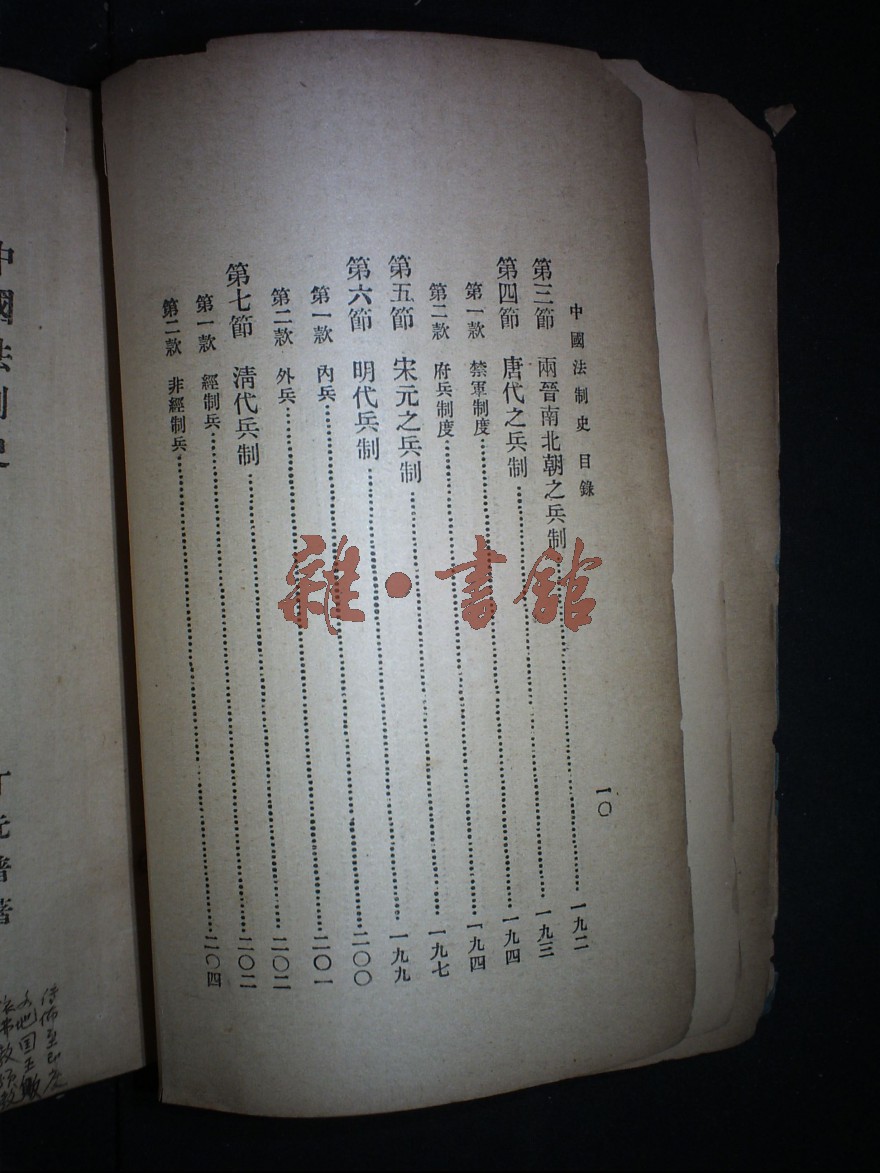 中國法制史 目錄
一〇
第三節 兩晉南北朝之兵制……一九二
第四節 唐代之兵制……一九三
第一款 禁軍制度……一九四
第二款 府兵制度……一九四
第五節 宋元之兵制……一九七
第六節 明代兵制……一九九
第一款 內兵……二〇〇
第二款 外兵……二〇一
第七節 清代兵制……二〇二
第一款 經制兵……二〇二
第二款 非經制兵……二〇四
雜·書館
中國法制史
丁元普著